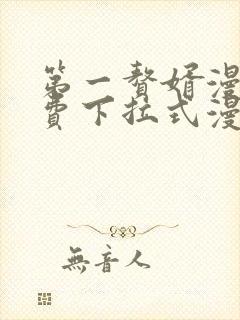 第一赘婿漫
费下拉式漫
無音人